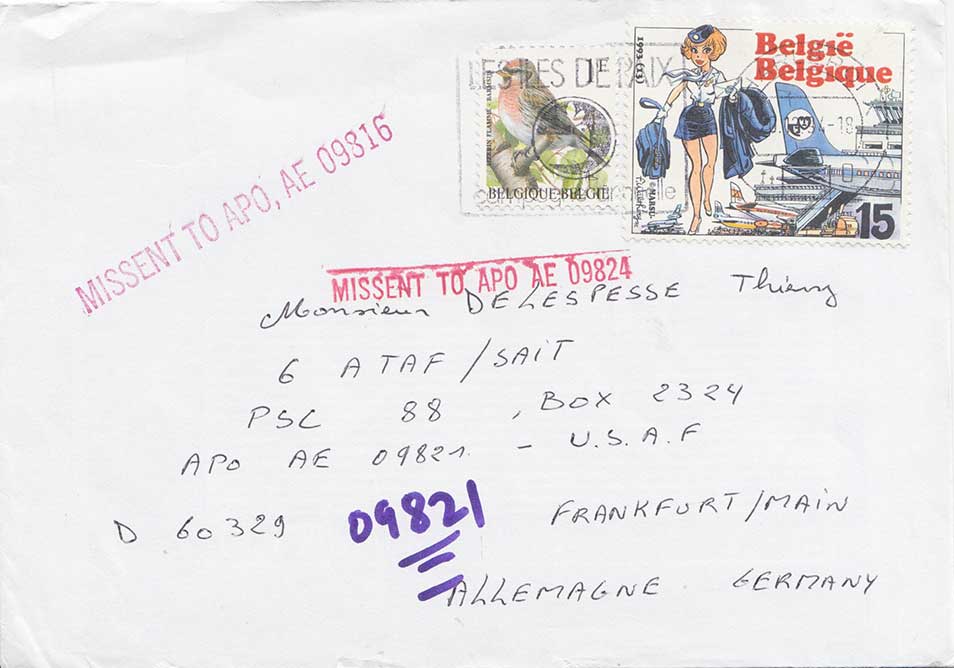 LES ILES DE PAIX
1F
SIZERIN FLAMMÉ BARMSIJS
BELGIQUE-BELGIE
1993 (13)
België
Belgique
-18
© MARSU
15
MISSENT TO APO, AE 09816
MISSENT TO APO AE 09824
Monsieur DELESPESSE Thierry
6 ATAF/SAIT
PSC 88, BOX 2324
APO AE 09821. - U.S.A.F
D 60329 09821 FRANKFURT/MAIN
ALLEMAGNE GERMANY